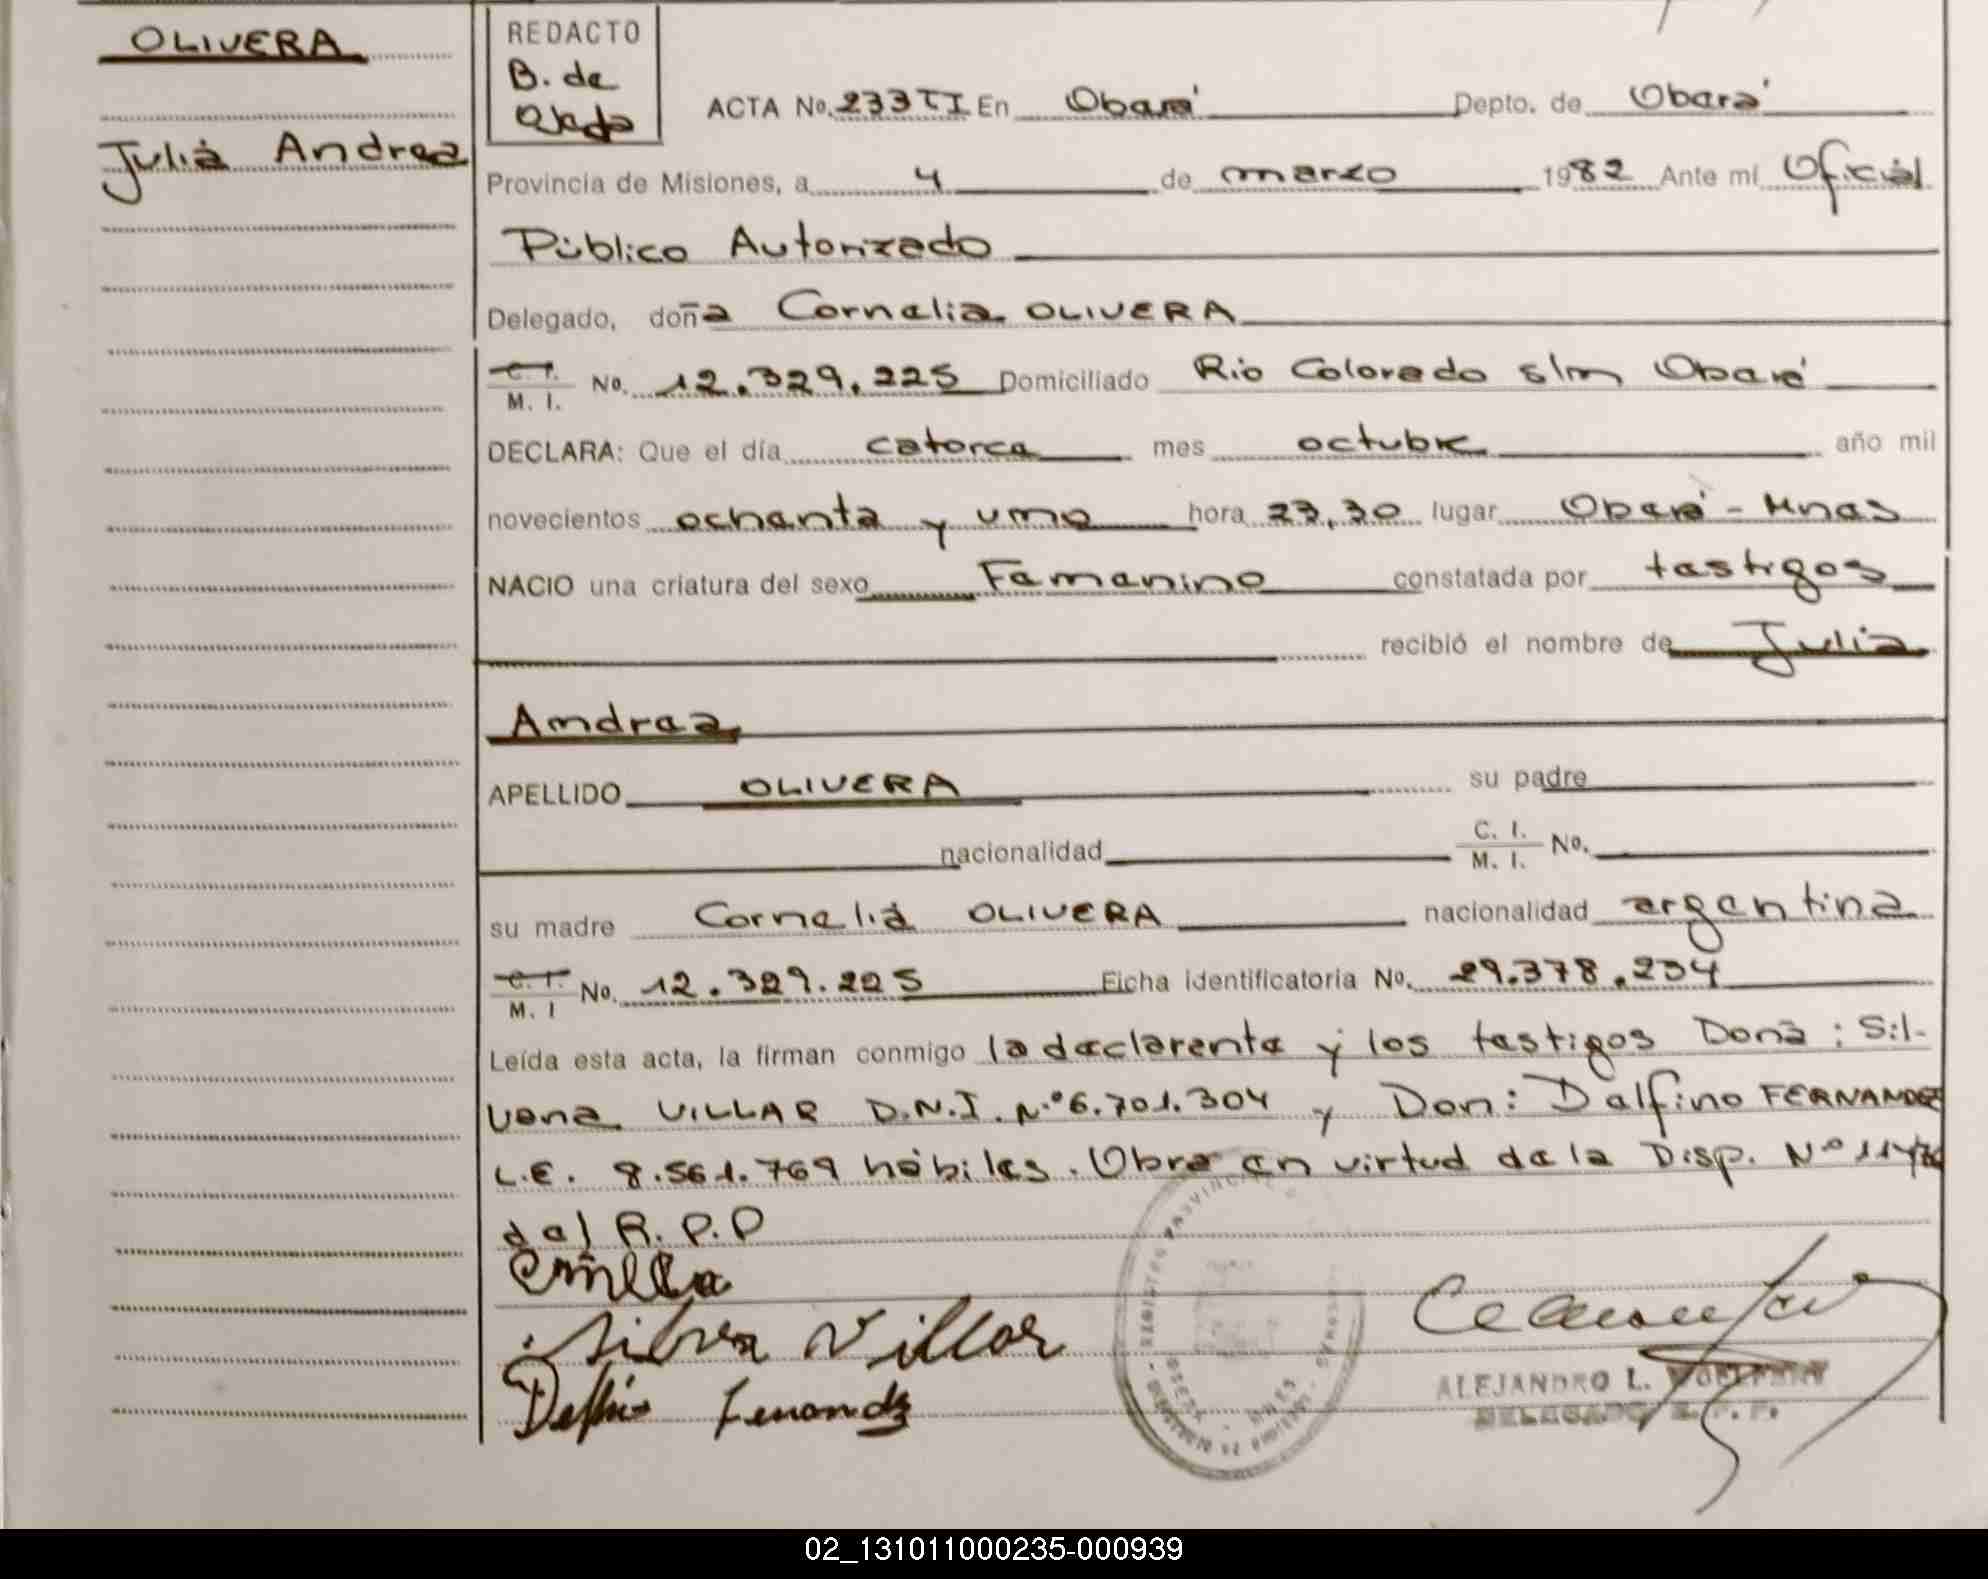 OLIVERA
Julia Andrea
REDACTO
B. de
Ojeda
ACTA No. 233 TI En Oberá Depto. de Oberá
Provincia de Misiones, a 4 de marzo 1982 Ante mí Oficial
Público Autorizado
Delegado, doña Cornelia OLIVERA
C. I.
M. I. No. 12.329.225 Domiciliado Rio Colorado s/n Oberá
DECLARA: Que el día catorce mes octubre año mil
novecientos ochenta y uno hora 23,30 lugar Oberá - Mnes
NACIO una criatura del sexo Femenino constatada por testigos
recibió el nombre de Julia
Andrea
APELLIDO OLIVERA su padre
nacionalidad C. I.
M. I. No.
su madre Cornelia OLIVERA nacionalidad argentina
C. I.
M. I No. 12.329.225 Ficha identificatoria No. 29.378.234
Leída esta acta, la firman conmigo la declarente y los testigos Dona : Sil-
vena VILLAR D.N.I. N.º 6.701.304 y Don: Delfino FERNANDEZ
L.E. 8.561.769 hábiles. Obra en virtud de la Disp. Nº
del R.P.P
Silvera Villar
Delfino Fernandz
ALEJANDRO L.
DELEGADO R. P. P.
02_131011000235-000939